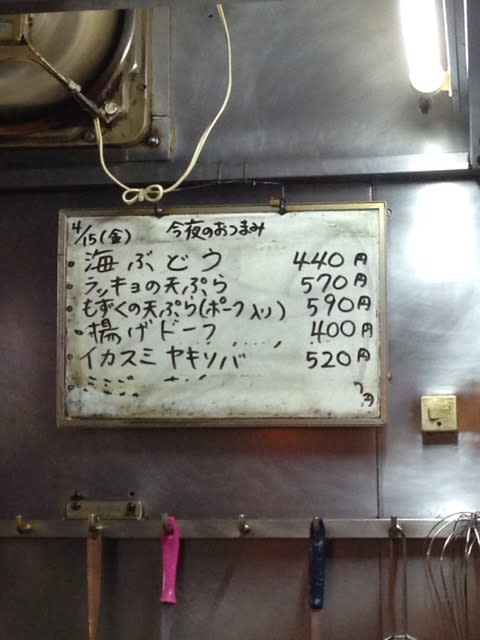 4/15(金) 今夜のおつまみ
海ぶどう 440円
ラッキョの天ぷら 570円
もずくの天ぷら(ポーク入り) 590円
揚げドーフ 400円
イカスミヤキソバ 520円